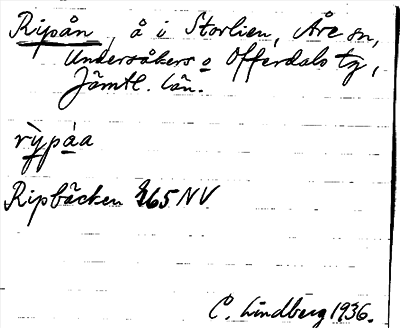 Ripån, å i Storlien, Åre sn,
Undersåkers o Offerdals tg,
Jämtl. län.
rỳpàa
Ripbäcken 265 NV
C. Lindberg 1936.